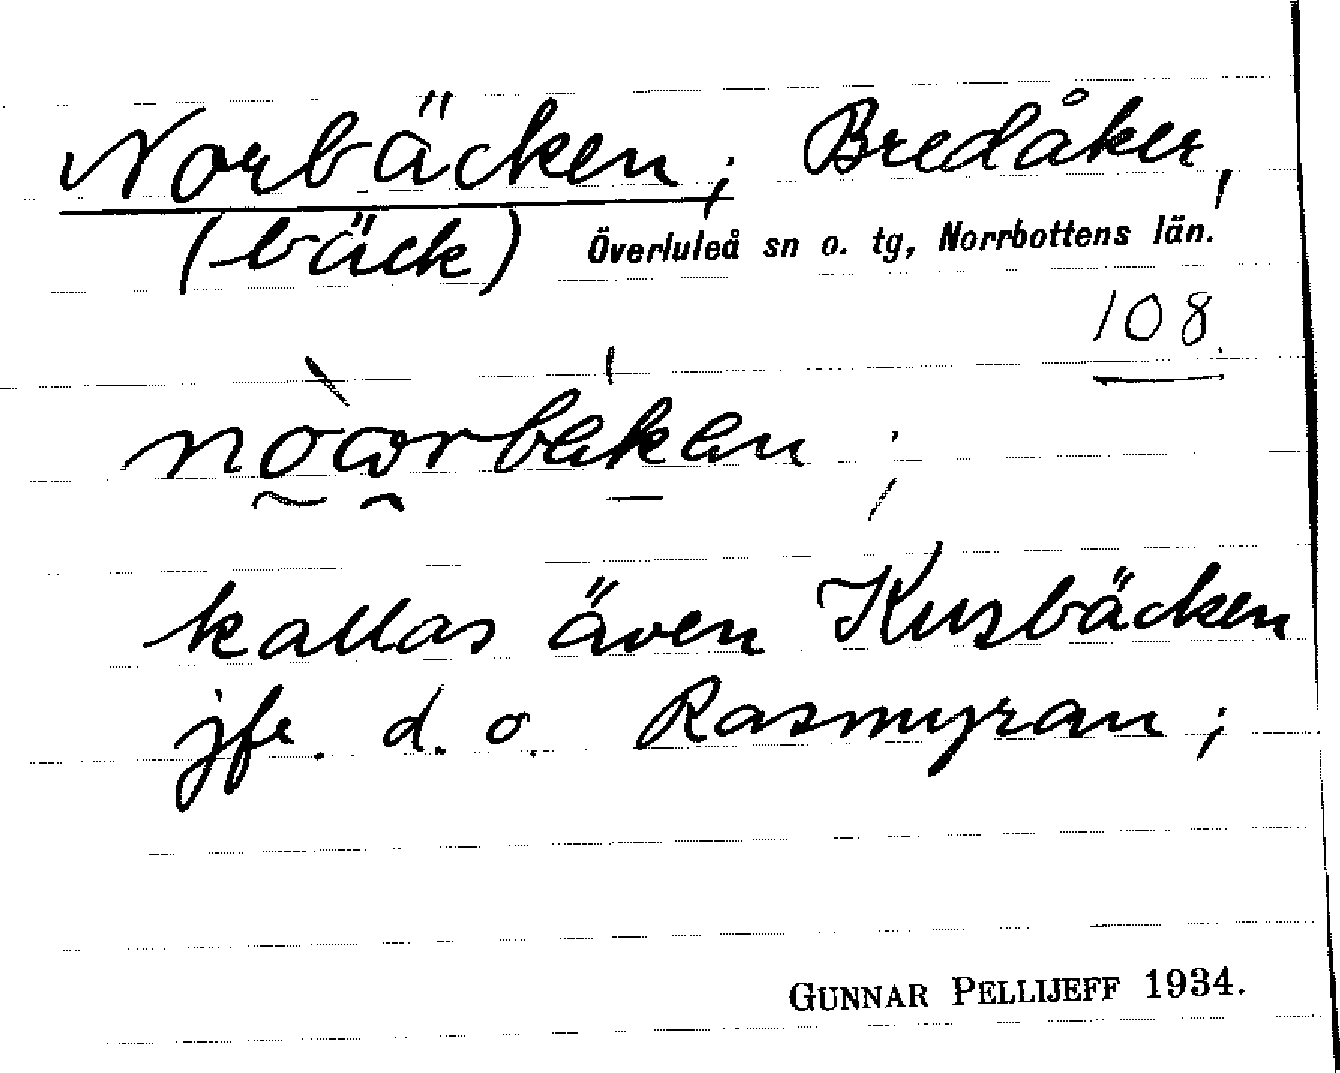 Norbäcken; Bredåker,
(bäck) Överluleå sn o. tg, Norrbottens län.
108.
kallas även Kusbäcken
jfr. d. o. Rasmyran;
GUNNAR PELLIJEFF 1934.